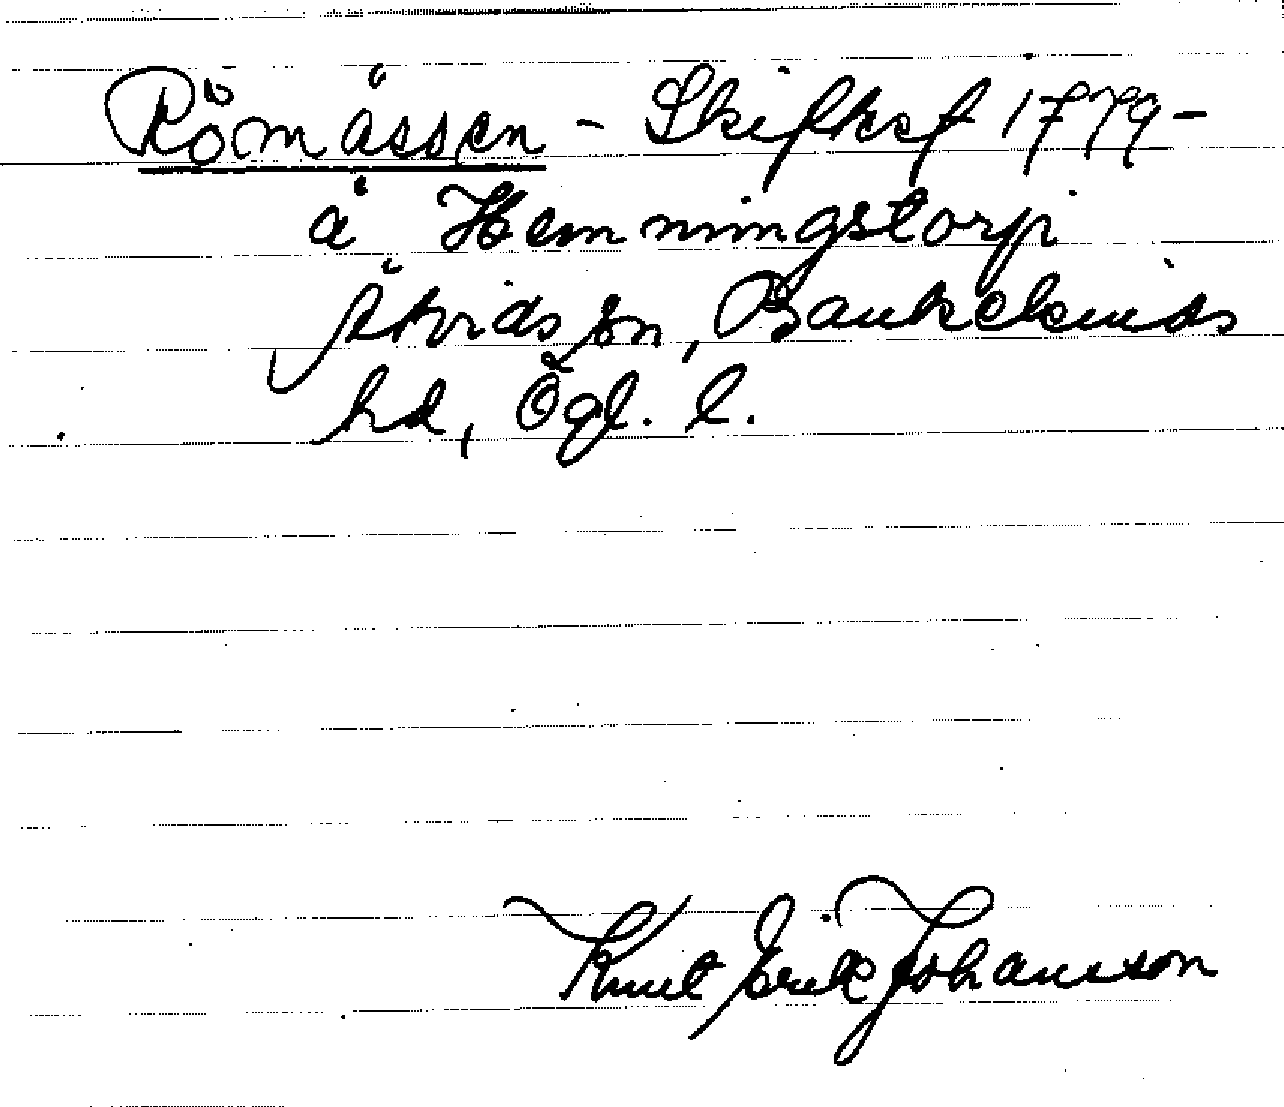 Römåssen - 1779 -
å Hemmingstorp
Åtvids sn, Bankekinds
hd, Ögl. l.
Knut Erik Johansson